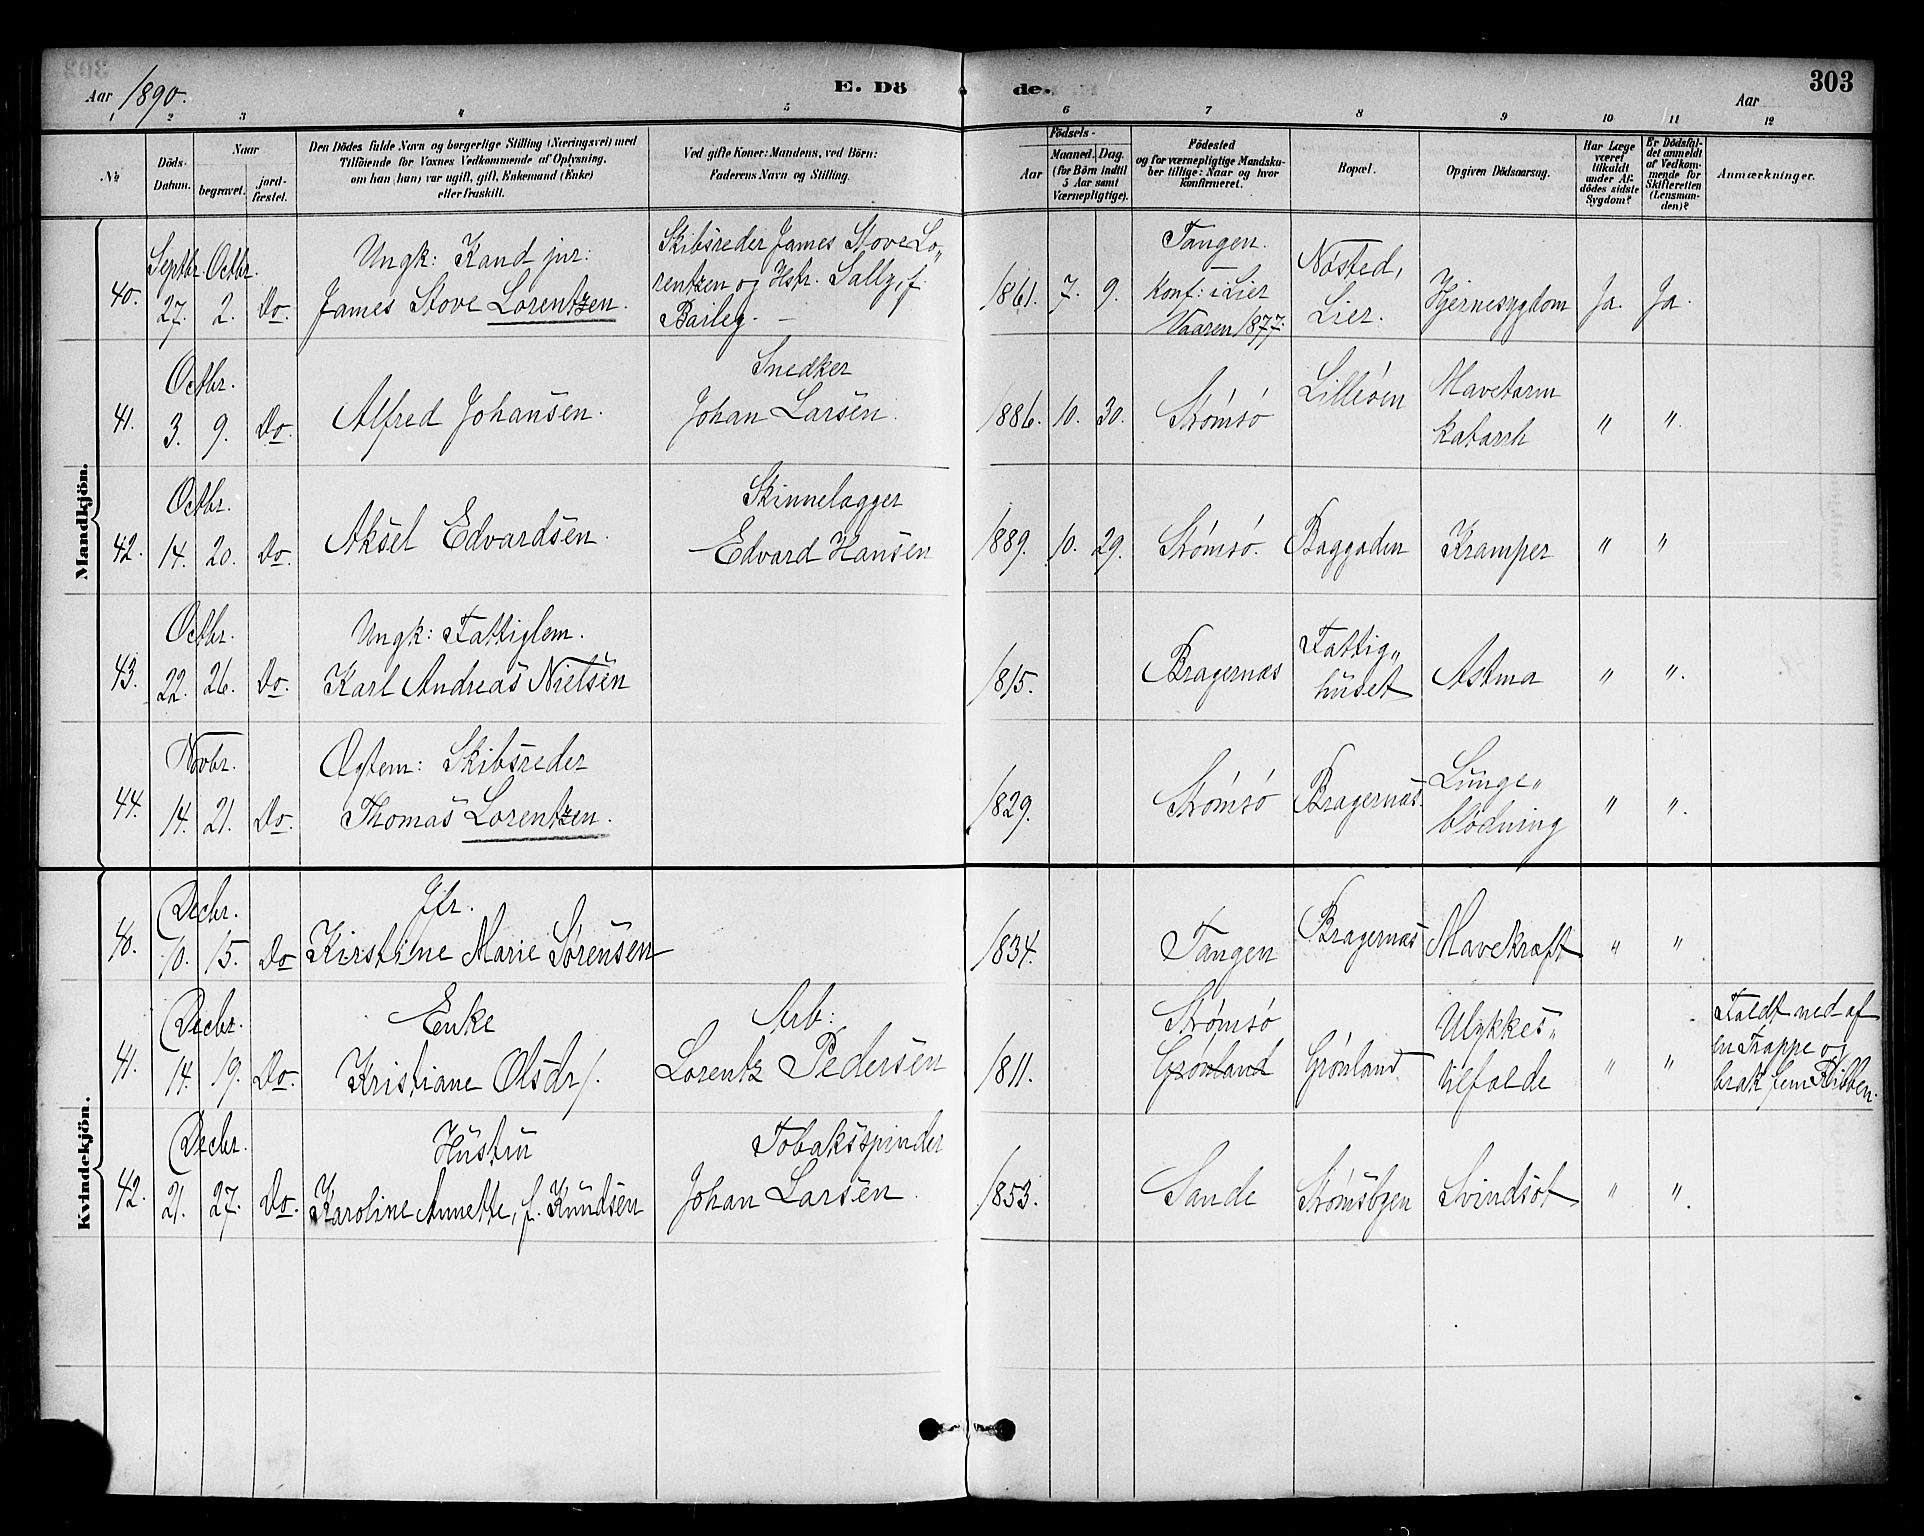 Aar 1890.
E. Dö
de.
303
Aar
1 2 3 4 5 6 7 8 9 10 11 12
№
Döds-
Datum.
Naar
begravet.
jord-
fæstet.
Den Dödes fulde Navn og borgerlige Stilling (Næringsvei) med
Tilföiende for Voxnes Vedkommende af Oplysning,
om han (hun) var ugift, gift, Enkemand (Enke)
eller fraskilt.
Ved gifte Koner: Mandens, ved Börn:
Faderens Navn og Stilling.
Födsels-
Aar
Maaned. Dag.
(for Börn indtil
5 Aar samt
Værnepligtige).
Födested
og for værnepligtige Mandska-
ber tillige: Naar og hvor
konfirmeret.
Bopæl.
Opgiven Dödsaarsag.
Har Læge
været
tilkaldt
under Af-
dödes sidste
Sygdom?
Er Dödsfal-
det anmeldt
af Vedkom-
mende for
Skifteretten
(Lensman-
den)?
Anmærkninger.
Mandkjön.
40.
Septbr.
27.
Octbr.
2.
Do.
Ungk: Kand jur:
James Stove Lorentzen.
Skibsreder James Stove Lo„
rentzen og Hstr. Sally, f.
Bailey. –
1861. 7. 9.
Tangen.
Konf: i Lier
Vaaren 1877.
Nøsted,
Lier.
Hjernesygdom
Ja.
Ja.
41.
Octbr.
3. 9. Do.
Alfred Johansen.
Snedker
Johan Larsen.
1886. 10. 30.
Strømsø
Lilleøen
Mavetarm
katarrh
" ".
42.
Octbr.
14. 20. Do.
Aksel Edvardsen.
Skinnelægger
Edvard Hansen
1889. 10. 29.
Strømsø.
Baggaden
Kramper
" "
43.
Octbr.
22. 26. Do.
Ungk: Fattiglem.
Karl Andreas Nielsen
1815.
Bragernæs
Fattig„
huset
Astma
" ".
44.
Novbr.
14. 21. Do.
Ægtem: Skibsreder
Thomas Lorentzen.
1829.
Strømsø
Bragernæs.
Lunge„
blødning
" ".
Kvindekjön.
40.
Decbr.
10. 15. Do
Jfr.
Kirstine Marie Sørensen
1834.
Tangen
Bragernæs
Mavekræft
" "
41.
Decbr.
14. 19. Do.
Enke
Kristiane Olsdr/.
Arb:
Lorentz Pedersen
1811.
Strømsø
Grønland
Grønland
Ulykkes„
tilfælde
" "
Faldt ned af
en Trappe og
brak fem Ribben.
42.
Decbr.
21. 27. Do.
Hustru
Karoline Annette, f. Knudsen
Tobaksspinder
Johan Larsen.
1853.
Sande
Strømsbyen
Svindsot
" ".